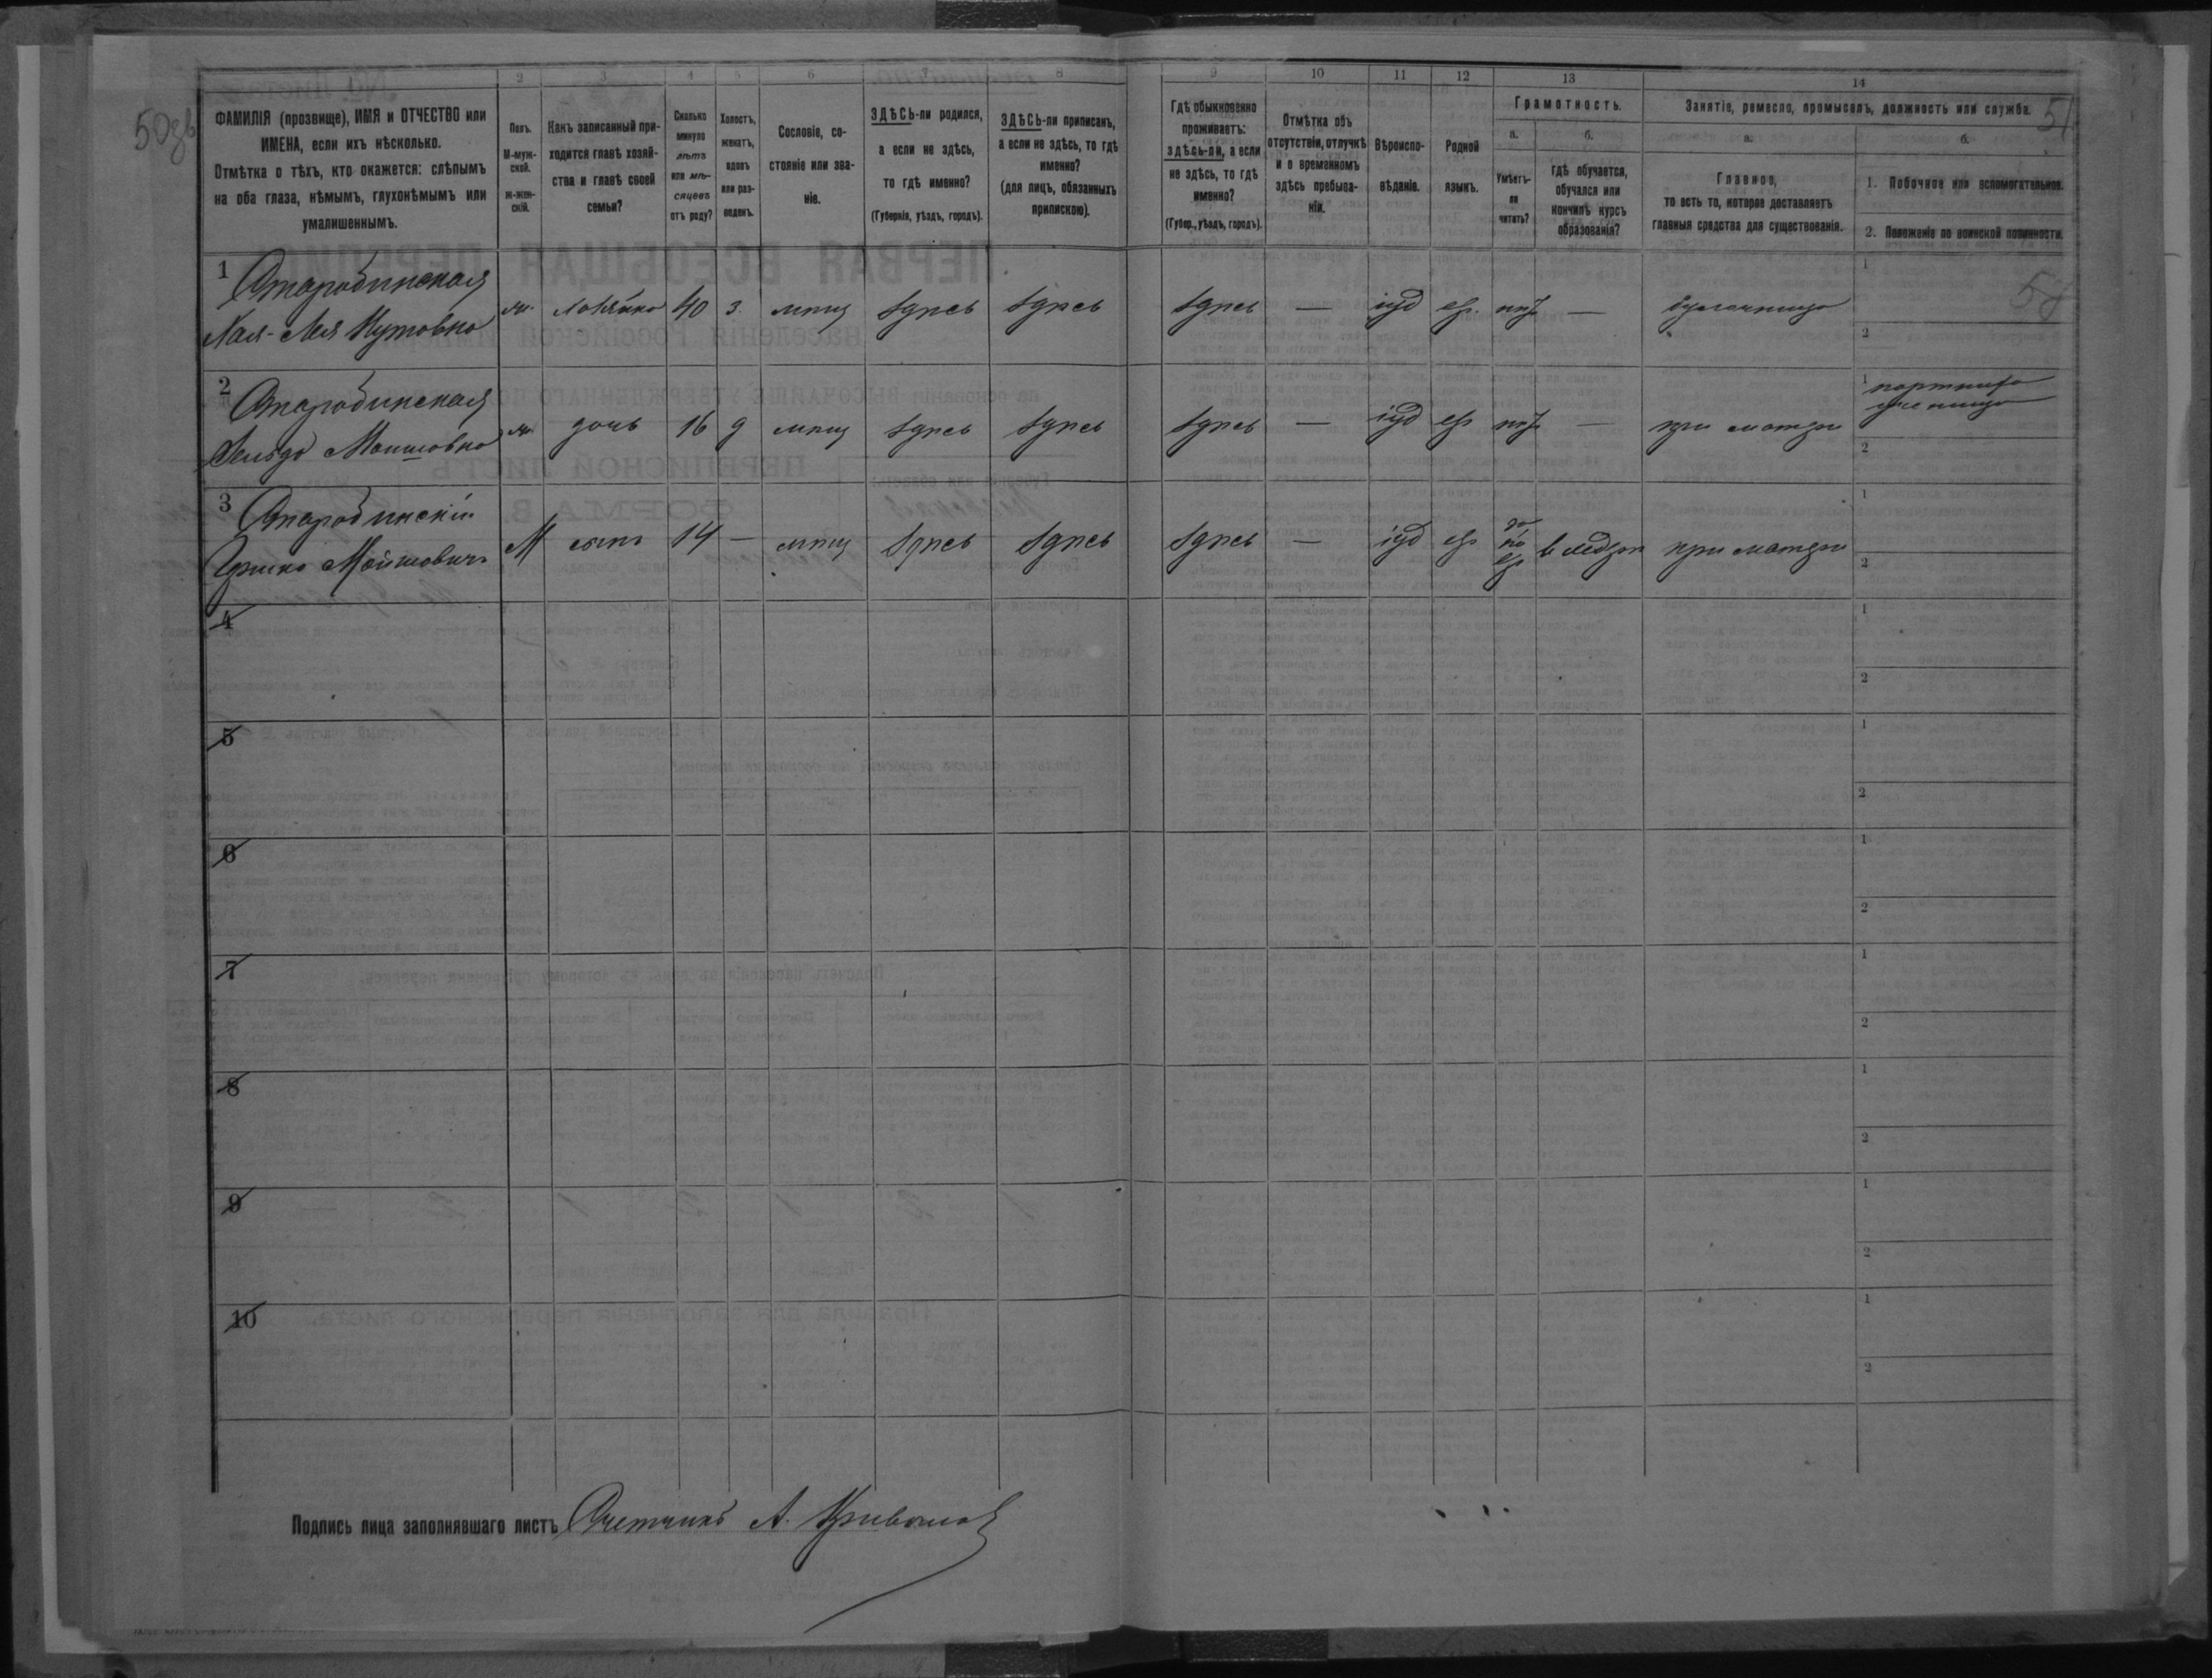 50об
51
1 2 3 4 5 6 7 8 9 10 11 12 13 14
ФАМИЛІЯ (прозвище), ИМЯ и ОТЧЕСТВО или
ИМЕНА, если ихъ нѣсколько.
Отмѣтка о тѣхъ, кто окажется: слѣпымъ
на оба глаза, нѣмымъ, глухонѣмымъ или
умалишеннымъ.
Полъ.
М-муж-
ской.
Ж-жен-
скій.
Какъ записанный при-
ходится главѣ хозяй-
ства и главѣ своей
семьи?
Сколько
минуло
лѣтъ
или мѣ-
сяцевъ
отъ роду?
Холостъ,
женатъ,
вдовъ
или раз-
веденъ.
Сословіе, со-
стояніе или зва-
ніе.
ЗДѢСЬ-ли родился,
а если не здѣсь,
то гдѣ именно?
(Губернія, уѣздъ, городъ).
ЗДѢСЬ-ли приписанъ,
а если не здѣсь, то гдѣ
именно?
(для лицъ, обязанныхъ
припискою).
Гдѣ обыкновенно
проживаетъ:
здѣсь-ли, а если
не здѣсь, то гдѣ
именно?
(Губер., уѣздъ, городъ).
Отмѣтка объ
отсутствіи, отлучкѣ
и о временномъ
здѣсь пребыва-
ніи.
Вѣроиспо-
вѣданіе.
Родной
языкъ.
Грамотность.
а. б.
Умѣетъ-
ли
читать?
гдѣ обучается,
обучался или
кончилъ курсъ
образованія?
Занятіе, ремесло, промыселъ, должность или служба.
а. б.
Главное,
то есть то, которое доставляетъ
главныя средства для существованія.
1. Побочное или вспомогательное.
2. Положеніе по воинской повинности.
1 Старобинская
Хая-Лея Нутовна
ж. хозяйка 40 з. мѣщ здѣсь здѣсь здѣсь — іуд евр. нѣт — булочница
1
2
2 Старобинская
Зельда Мошовна
ж. дочь 16 д мѣщ здѣсь здѣсь здѣсь — іуд евр нѣт — при матери
1 портниха
ученица
2
3 Старобинскій
Гришко Мойшовичъ
М сынъ 14 — мѣщ здѣсь здѣсь здѣсь — іуд евр да
по
евр в хедере при матери
1
2
4
1
2
5
1
2
6
1
2
7
1
2
8
1
2
9
1
2
10
1
2
Подпись лица заполнявшаго листъ Счетчикъ А.